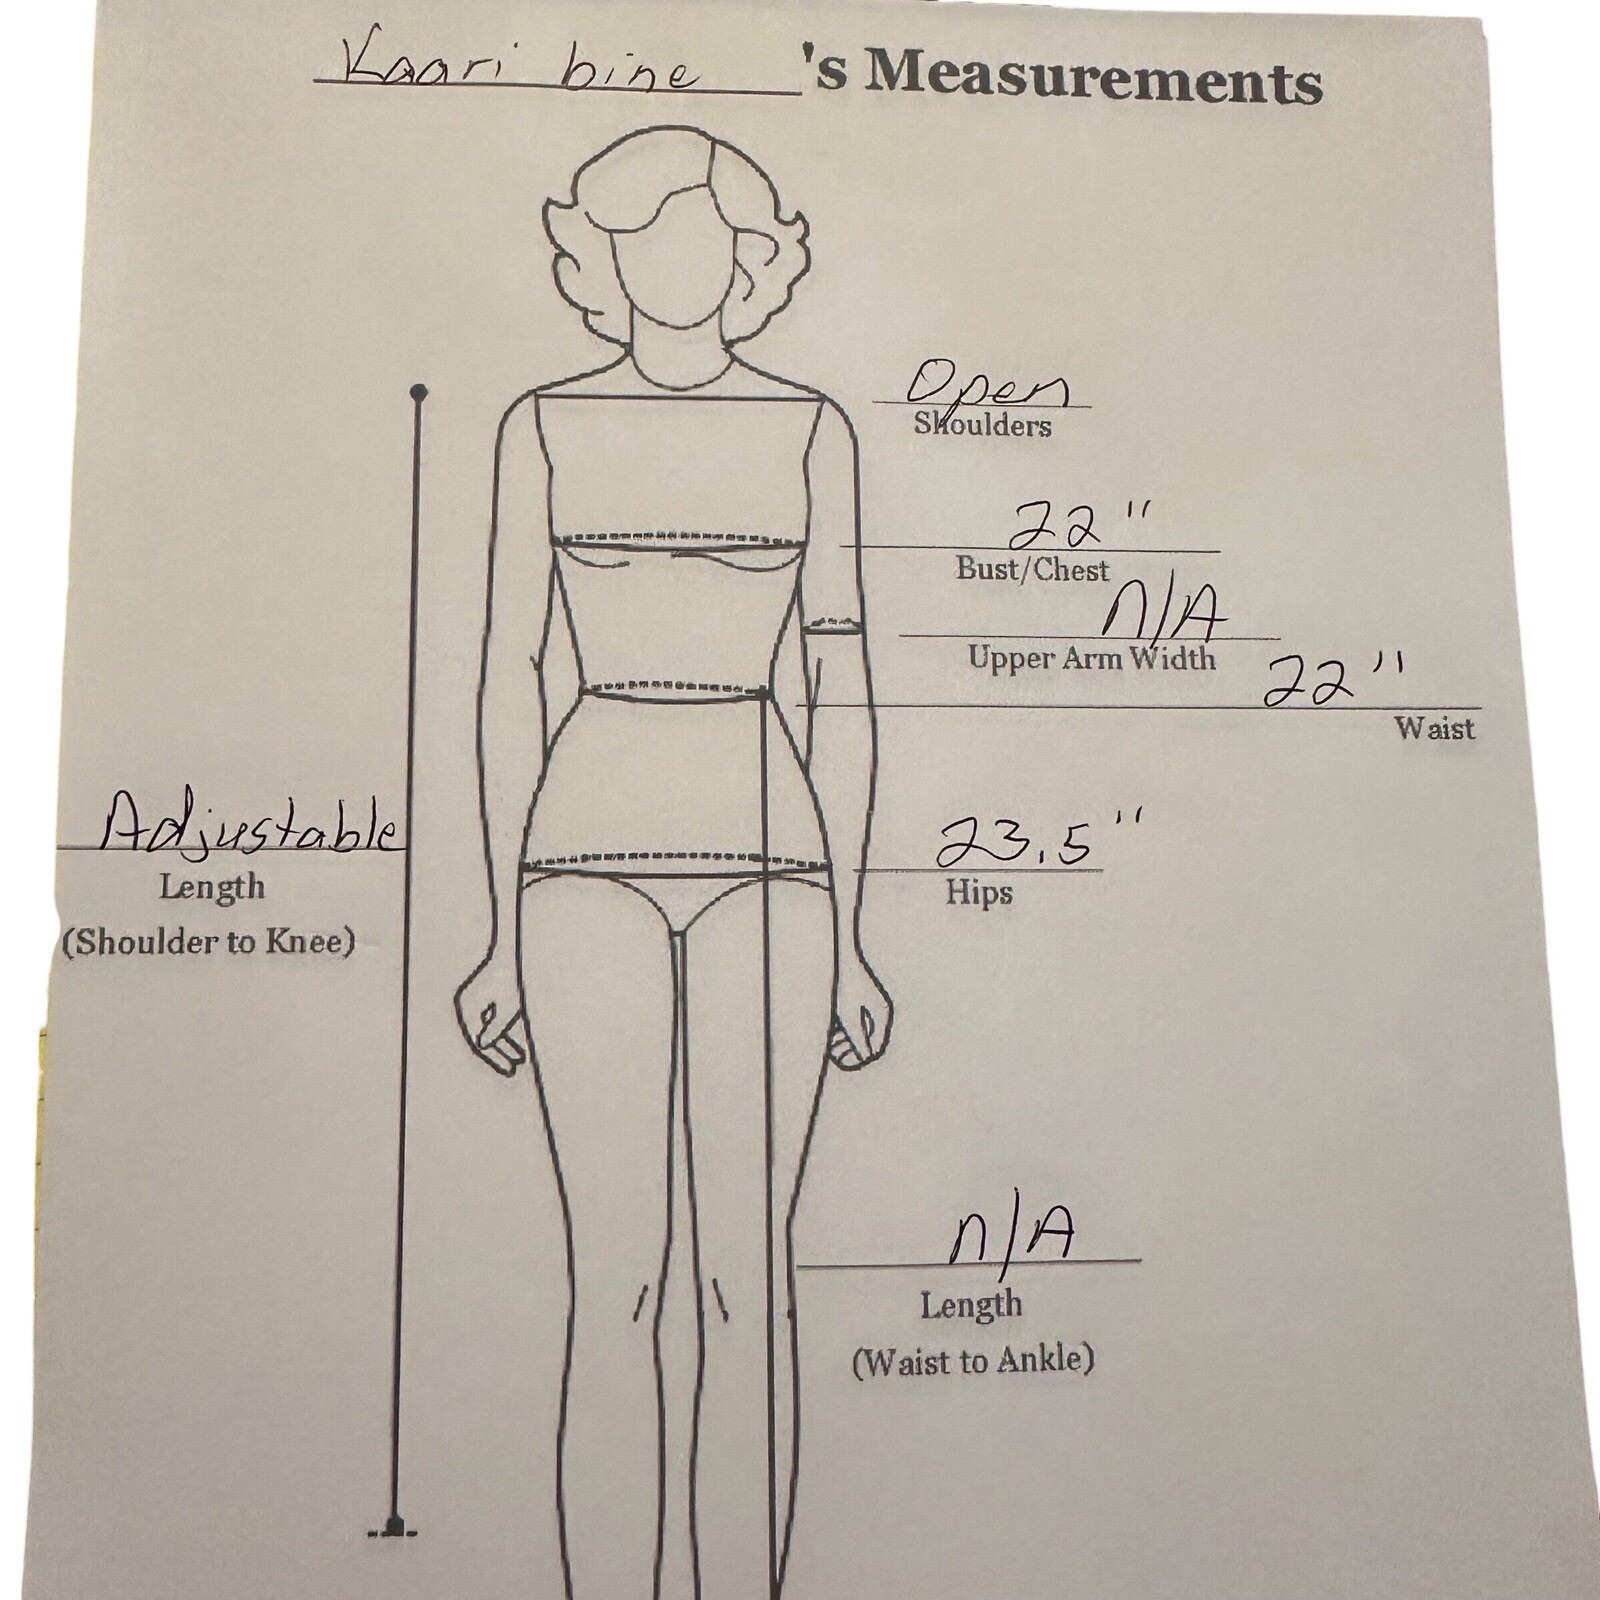 Kaari bine 's Measurements
Open
Shoulders
22"
Bust/Chest
n/A
Upper Arm Width
22"
Waist
Adjustable
Length
(Shoulder to Knee)
23.5"
Hips
n/A
Length
(Waist to Ankle)